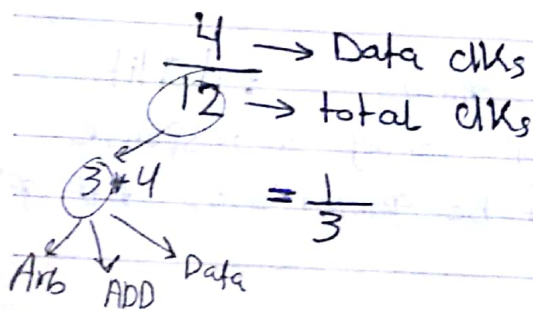 4 → Data clks
12 → total clks
3 * 4 = 1/3
Arb ADD Data